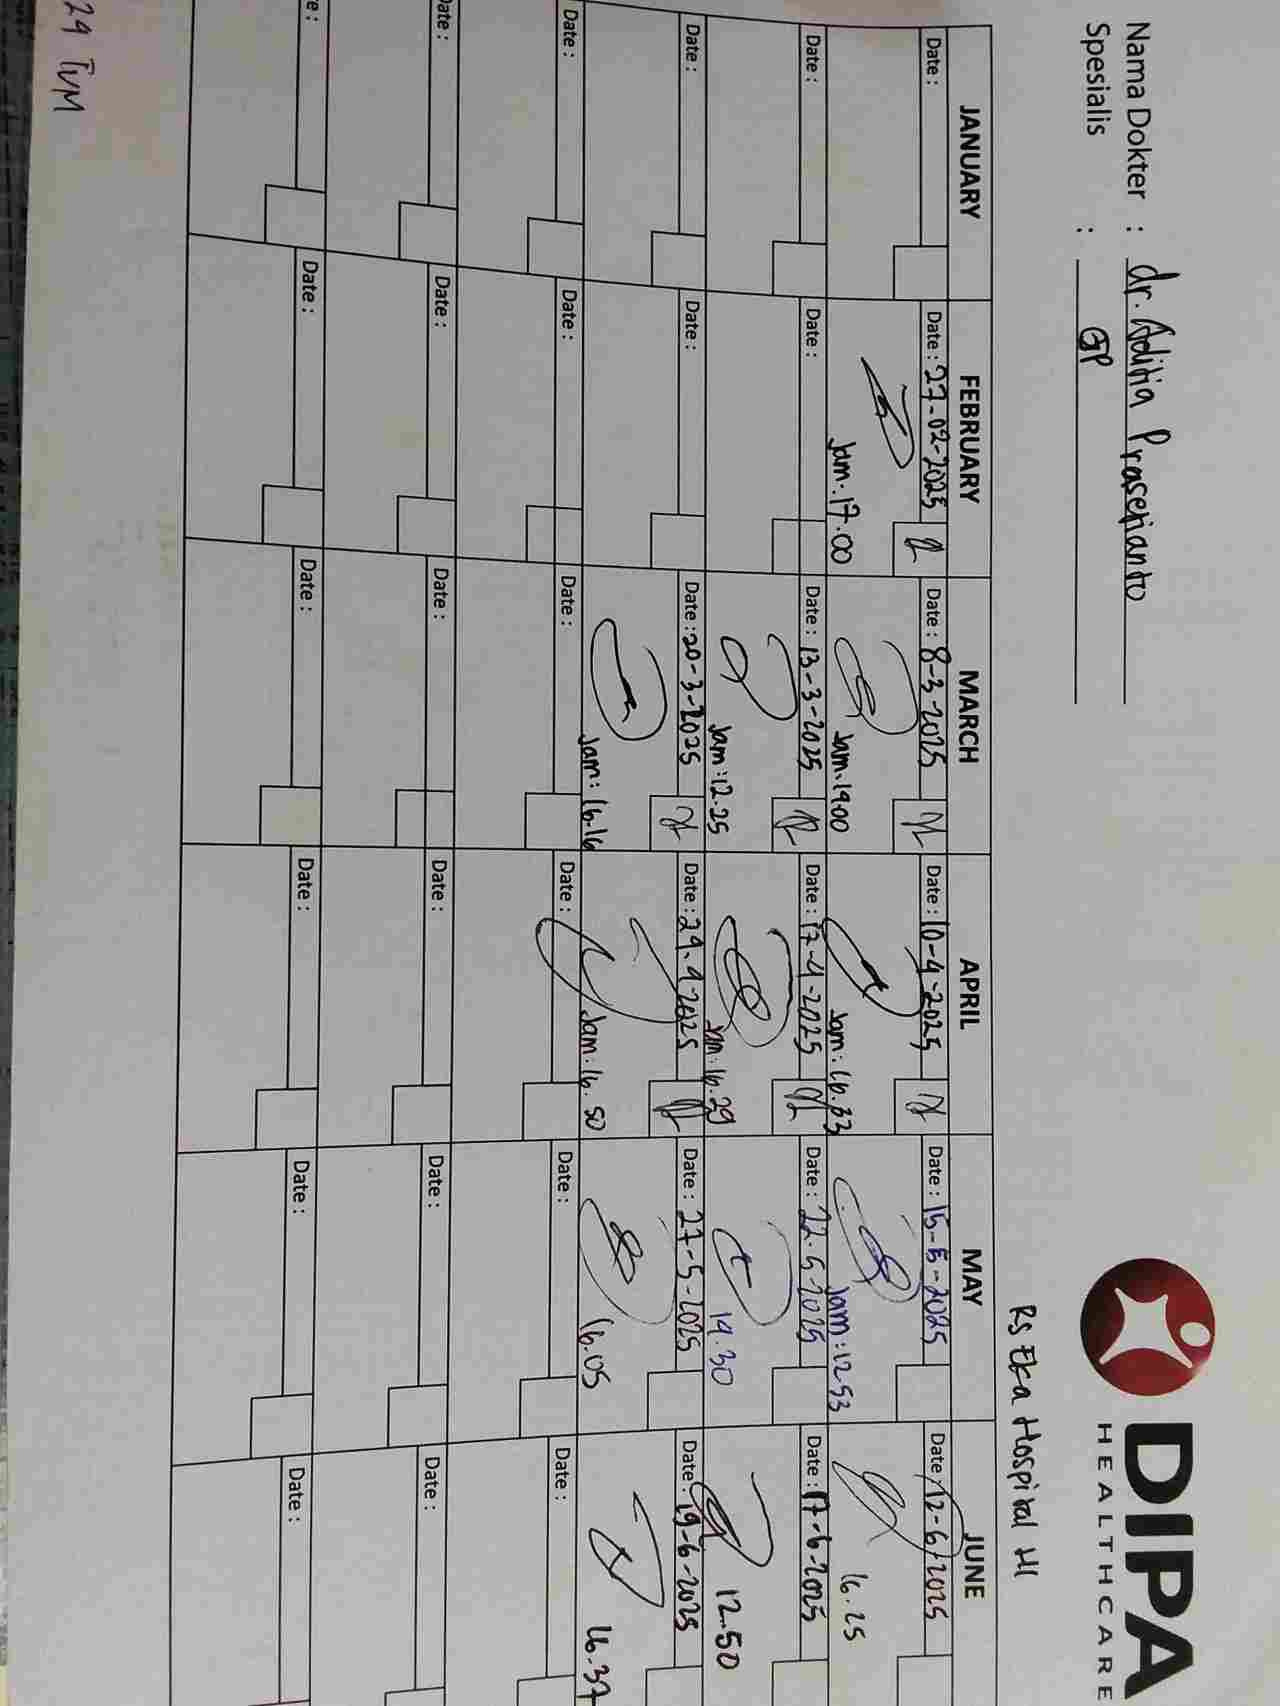 Nama Dokter : dr. Aditia Prasetianto
Spesialis : GP
DIPA
HEALTHCARE
RS Eka Hospital
JANUARY FEBRUARY MARCH APRIL MAY JUNE
Date : Date : 27-02-2025 Date : 8-3-2025 Date : 10-4-2025 Date : 15-5-2025 Date : 12-6-2025
Jam : 17.00 Jam : 19.00 Jam : 16.33 Jam : 12.53 16.25
Date : Date : Date : 13-3-2025 Date : 17-4-2025 Date : 22.5-2025 Date : 17-6-2025
Jam : 12.25 Jam : 16.29 19.30 12.50
Date : Date : Date : 20-3-2025 Date : 29.4-2025 Date : 27-5-2025 Date : 19-6-2025
Jam : 16.16 Jam : 16.50 16.05 16.37
Date : Date : Date : Date : Date : Date :
Date : Date : Date : Date : Date : Date :
Date : Date : Date : Date : Date :
29 TVM